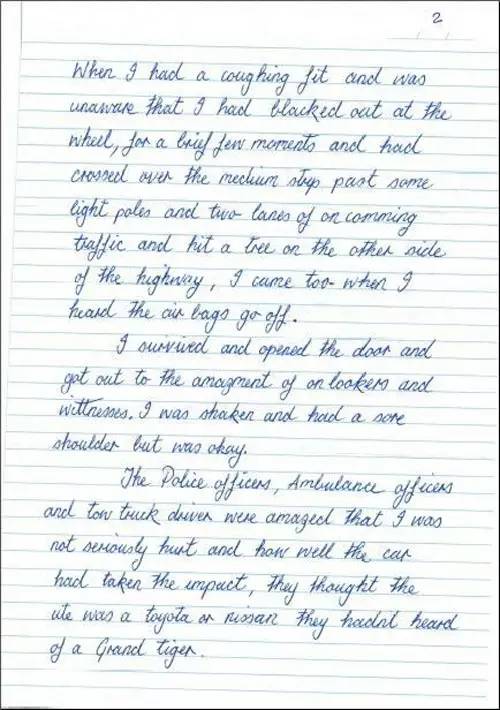 2
When I had a coughing fit and was
unaware that I had blacked out at the
wheel, for a brief few moments and had
crossed over the medium strip past some
light poles and two lanes of on comming
traffic and hit a tree on the other side
of the highway, I came too-when I
heard the air bags go off.
I survived and opened the door and
got out to the amazment of on lookers and
wittnesses. I was shaken and had a sore
shoulder but was okay.
The Police officers, Ambulance officers
and tow truck driver were amazed that I was
not seriously hurt and how well the car
had taken the impact, they thought the
ute was a toyota or nissan they hadnt heard
of a Grand tiger.